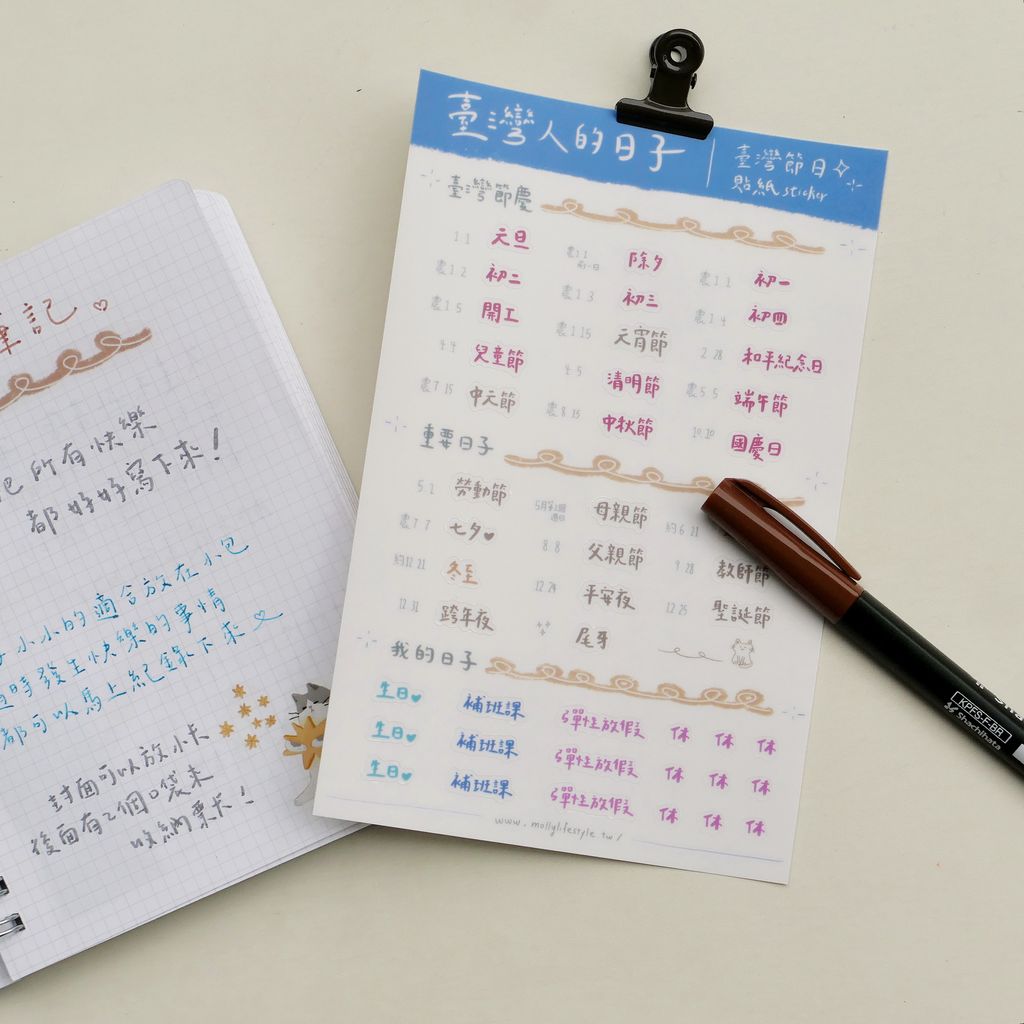 筆記
把所有快樂
都好好寫下來！
小小的適合放在小包
隨時發生快樂的事情
都可以馬上紀錄下來
封面可以放小卡
後面有2個口袋來
收納票卡！
臺灣人的日子 臺灣節日
貼紙 sticker
臺灣節慶
1.1 元旦 農1.1前一日 除夕 農1.1 初一
農1.2 初二 農1.3 初三 農1.4 初四
農1.5 開工 農1.15 元宵節 2.28 和平紀念日
4.4 兒童節 4.5 清明節 農5.5 端午節
農7.15 中元節 農8.15 中秋節 10.10 國慶日
重要日子
5.1 勞動節 5月第2個週日 母親節 約6.21
農7.7 七夕 8.8 父親節 9.28 教師節
約12.21 冬至 12.24 平安夜 12.25 聖誕節
12.31 跨年夜 尾牙
我的日子
生日 補班課 彈性放假 休 休 休
生日 補班課 彈性放假 休 休 休
生日 補班課 彈性放假 休 休 休
www.mollylifestyle.tw/
KPFS-F-BR
Shachihata